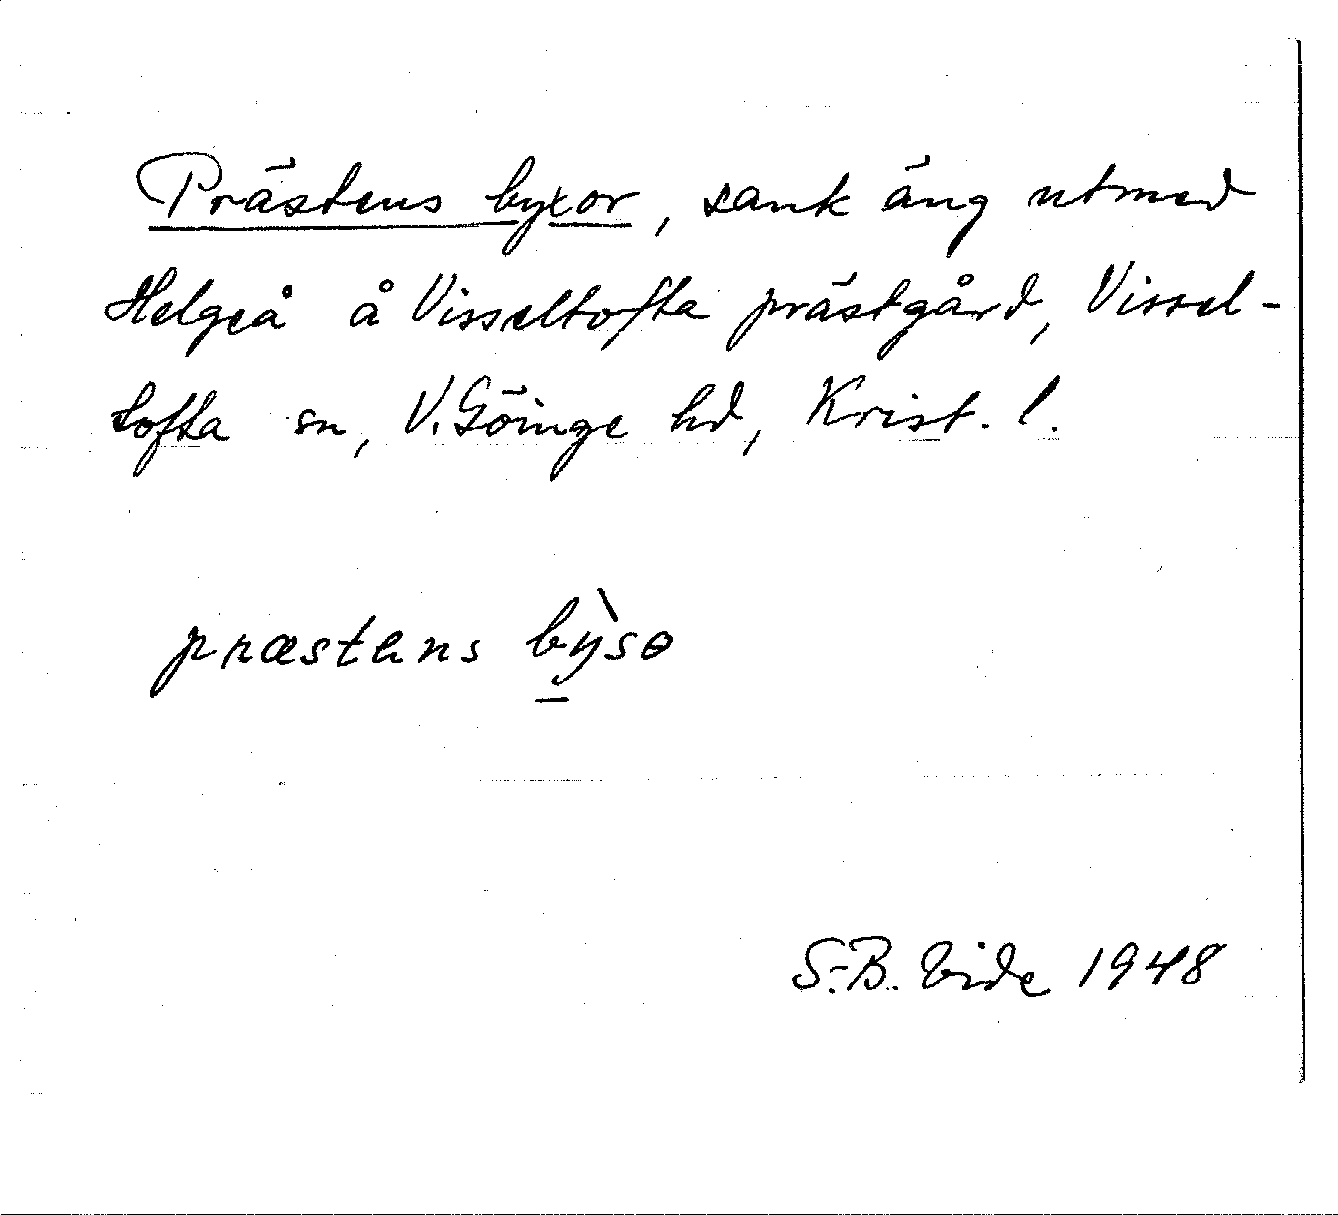 Prästens byxor, sank äng utmed
Helgeå å Visseltofta prästgård, Vissel-
tofta sn, V. Göinge hd, Krist. l.
præstens bỳsə
S.-B. Vide 1948